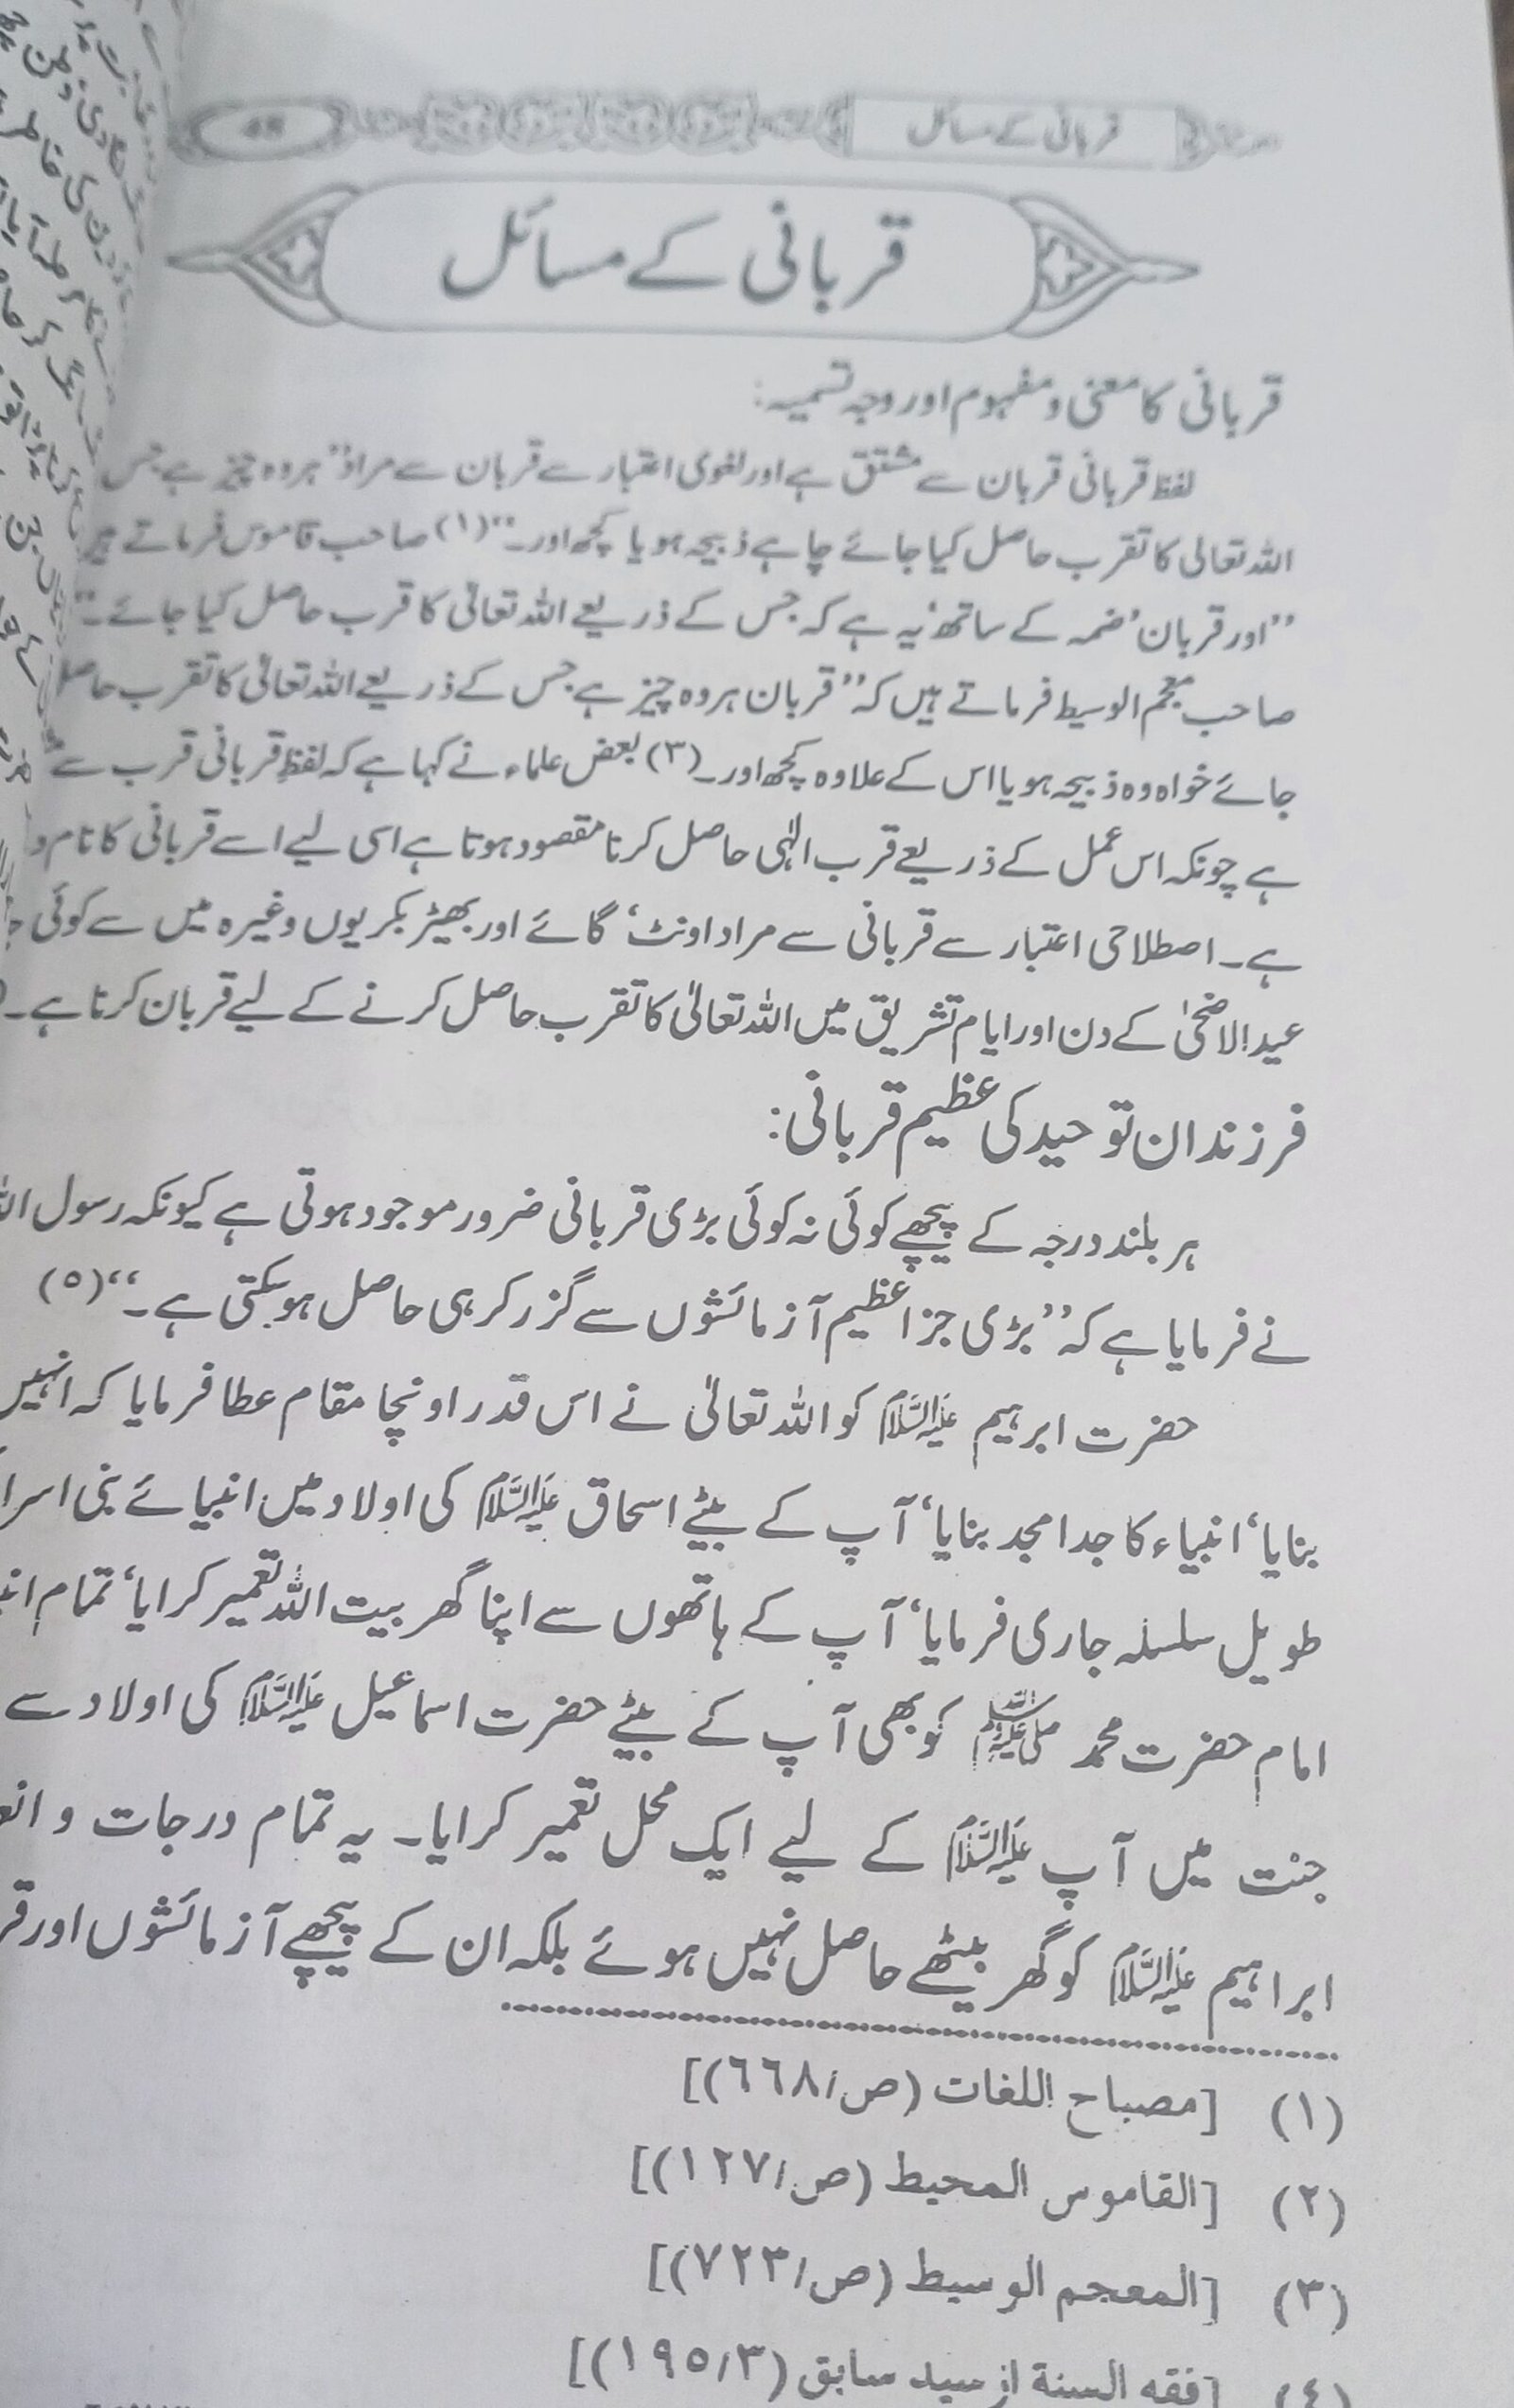 قربانی کے مسائل
قربانی کے مسائل
قربانی کا معنی و مفہوم اور وجہ تسمیہ:
لفظ قربانی قربان سے مشتق ہے اور لغوی اعتبار سے قربان سے مراد ”ہر وہ چیز ہے جس
اللہ تعالی کا تقرب حاصل کیا جائے چاہے ذبیحہ ہو یا کچھ اور۔“(۱) صاحب قاموس فرماتے
”اور قربان’ ضمہ کے ساتھ‘ یہ ہے کہ جس کے ذریعے اللہ تعالیٰ کا قرب حاصل کیا جائے۔“
صاحب معجم الوسیط فرماتے ہیں کہ ”قربان ہر وہ چیز ہے جس کے ذریعے اللہ تعالیٰ کا تقرب حاصل
جائے خواہ وہ ذبیحہ ہو یا اس کے علاوہ کچھ اور۔(۳) بعض علماء نے کہا ہے کہ لفظِ قربانی قرب سے
ہے چونکہ اس عمل کے ذریعے قرب الٰہی حاصل کرنا مقصود ہوتا ہے اسی لیے اسے قربانی کا نام
ہے۔ اصطلاحی اعتبار سے قربانی سے مراد اونٹ‘ گائے اور بھیڑ بکریوں وغیرہ میں سے کوئی
عید الاضحیٰ کے دن اور ایام تشریق میں اللہ تعالیٰ کا تقرب حاصل کرنے کے لیے قربان کرنا ہے۔
فرزندان توحید کی عظیم قربانی:
ہر بلند درجہ کے پیچھے کوئی نہ کوئی بڑی قربانی ضرور موجود ہوتی ہے کیونکہ رسول
نے فرمایا ہے کہ ”بڑی جزا عظیم آزمائشوں سے گزر کر ہی حاصل ہو سکتی ہے۔“(۵)
حضرت ابرہیم علیہ السلام کو اللہ تعالیٰ نے اس قدر اونچا مقام عطا فرمایا کہ انہیں
بنایا‘ انبیاء کا جد امجد بنایا‘ آپ کے بیٹے اسحاق علیہ السلام کی اولاد میں انبیائے بنی
طویل سلسلہ جاری فرمایا‘ آپ کے ہاتھوں سے اپنا گھر بیت اللہ تعمیر کرایا‘ تمام
امام حضرت محمد ﷺ کو بھی آپ کے بیٹے حضرت اسماعیل علیہ السلام کی اولاد سے
جنت میں آپ علیہ السلام کے لیے ایک محل تعمیر کرایا۔ یہ تمام درجات و
ابراہیم علیہ السلام کو گھر بیٹھے حاصل نہیں ہوئے بلکہ ان کے پیچھے آزمائشوں اور
(۱) [مصباح اللغات (ص/٦٦٨)]
(۲) [القاموس المحیط (ص/۱۲۷)]
(۳) [المعجم الوسیط (ص/۷۲۳)]
(٤) [فقه السنة از سید سابق (۱۹۵/۳)]